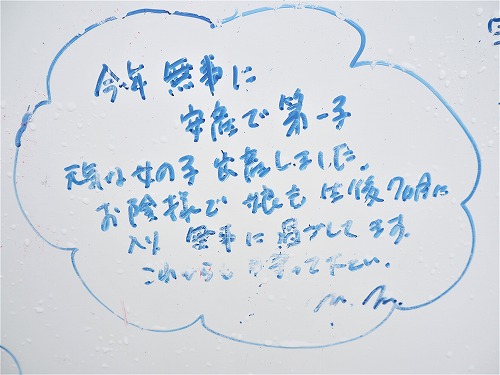 今年 無事に
安産で 第一子
元気な女の子 出産しました。
お陰様で 娘も 生後7ヶ月に
入り 無事に過かしてます。
これからも 見守って下さい。
M. M.